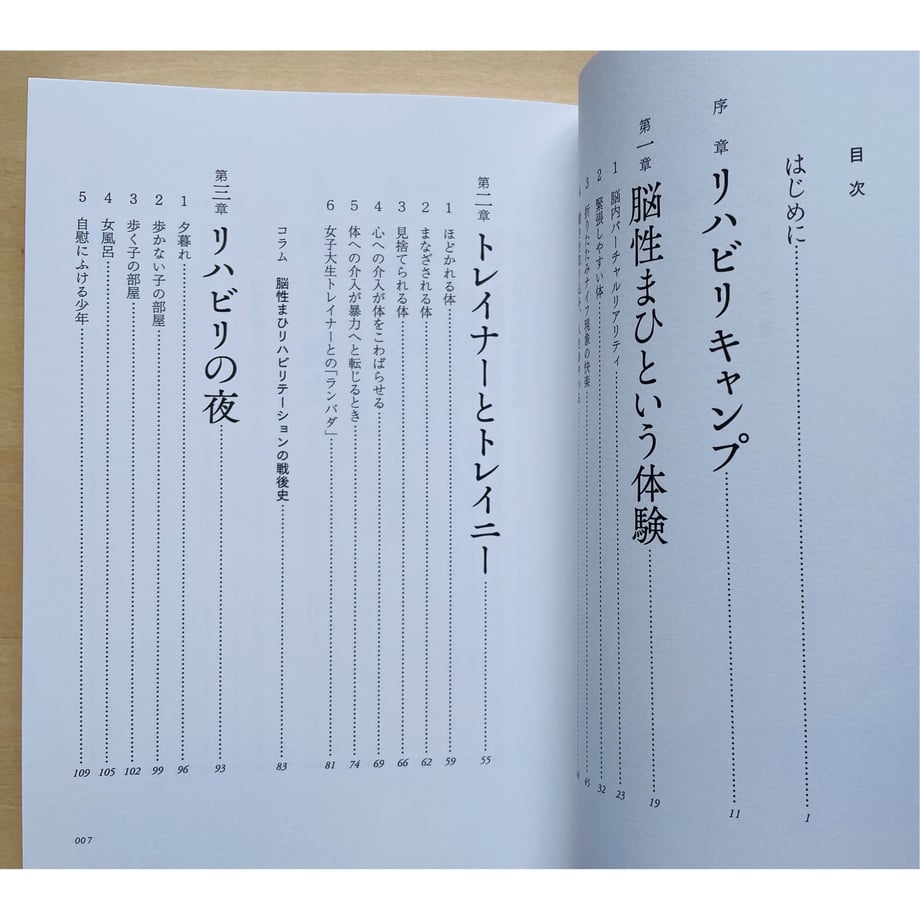 目次
はじめに 1
序章 リハビリキャンプ 11
第一章 脳性まひという体験 19
1 脳内バーチャルリアリティ 23
2 緊張しやすい体 32
3 折りたたみナイフ現象の快楽 45
第二章 トレイナーとトレイニー 55
1 ほどかれる体 59
2 まなざされる体 62
3 見捨てられる体 66
4 心への介入が体をこわばらせる 69
5 体への介入が暴力へと転じるとき 74
6 女子大生トレイナーとの「ランバダ」 81
コラム 脳性まひリハビリテーションの戦後史 83
第三章 リハビリの夜 93
1 夕暮れ 96
2 歩かない子の部屋 99
3 歩く子の部屋 102
4 女風呂 105
5 自慰にふける少年 109
007